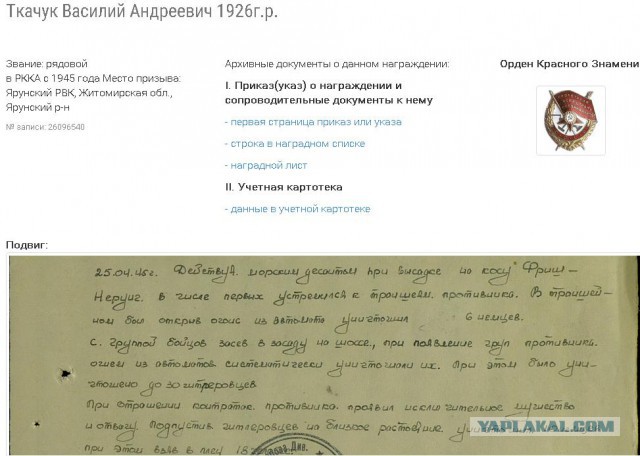 Ткачук Василий Андреевич 1926г.р.
Звание: рядовой
в РККА с 1945 года Место призыва:
Ярунский РВК, Житомирская обл.,
Ярунский р-н
№ записи: 26096540
Архивные документы о данном награждении:
I. Приказ(указ) о награждении и
сопроводительные документы к нему
- первая страница приказ или указа
- строка в наградном списке
- наградной лист
II. Учетная картотека
- данные в учетной картотеке
Орден Красного Знамени
Подвиг:
25.04.45г. Действуя морским десантом при высадке на косу Фриш-
Нерунг. в числе первых устремился к траншеям противника. В траншей-
ном бою открыв огонь из автомата уничтожил 6 немцев.
С группой бойцов засев в засаду на шоссе, при появление груп противника
огнем из автоматов систематически уничтожали их. При этом было уни-
чтожено до 30 гитлеровцев
При отражении контратак противника проявил исключительное мужество
и отвагу Подпустив гитлеровцев на близкое растояние.
при этом взяв в плен 18
Див.
YAPLAKAL.COM